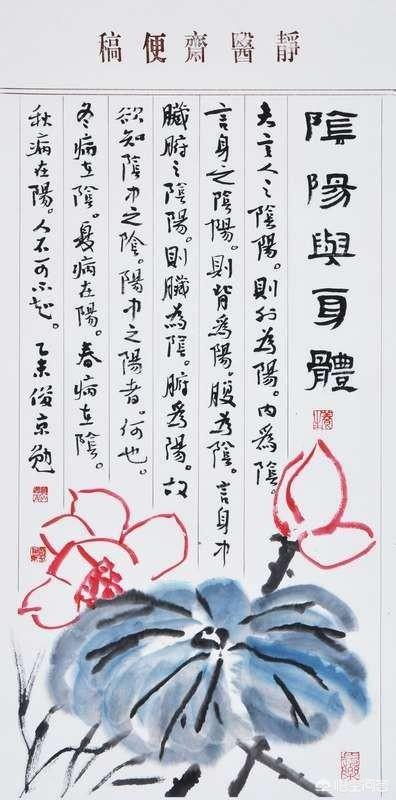 靜醫齋便稿
陰陽與身體
夫言人之陰陽。則外為陽。內為陰。
言身之陰陽。則背為陽。腹為陰。言身中
臟腑之陰陽。則臟為陰。腑為陽。故
欲知陰中之陰。陽中之陽者。何也。
冬病在陰。夏病在陽。春病在陰。
秋病在陽。人不可不知。乙未俊京勉
悟空问答